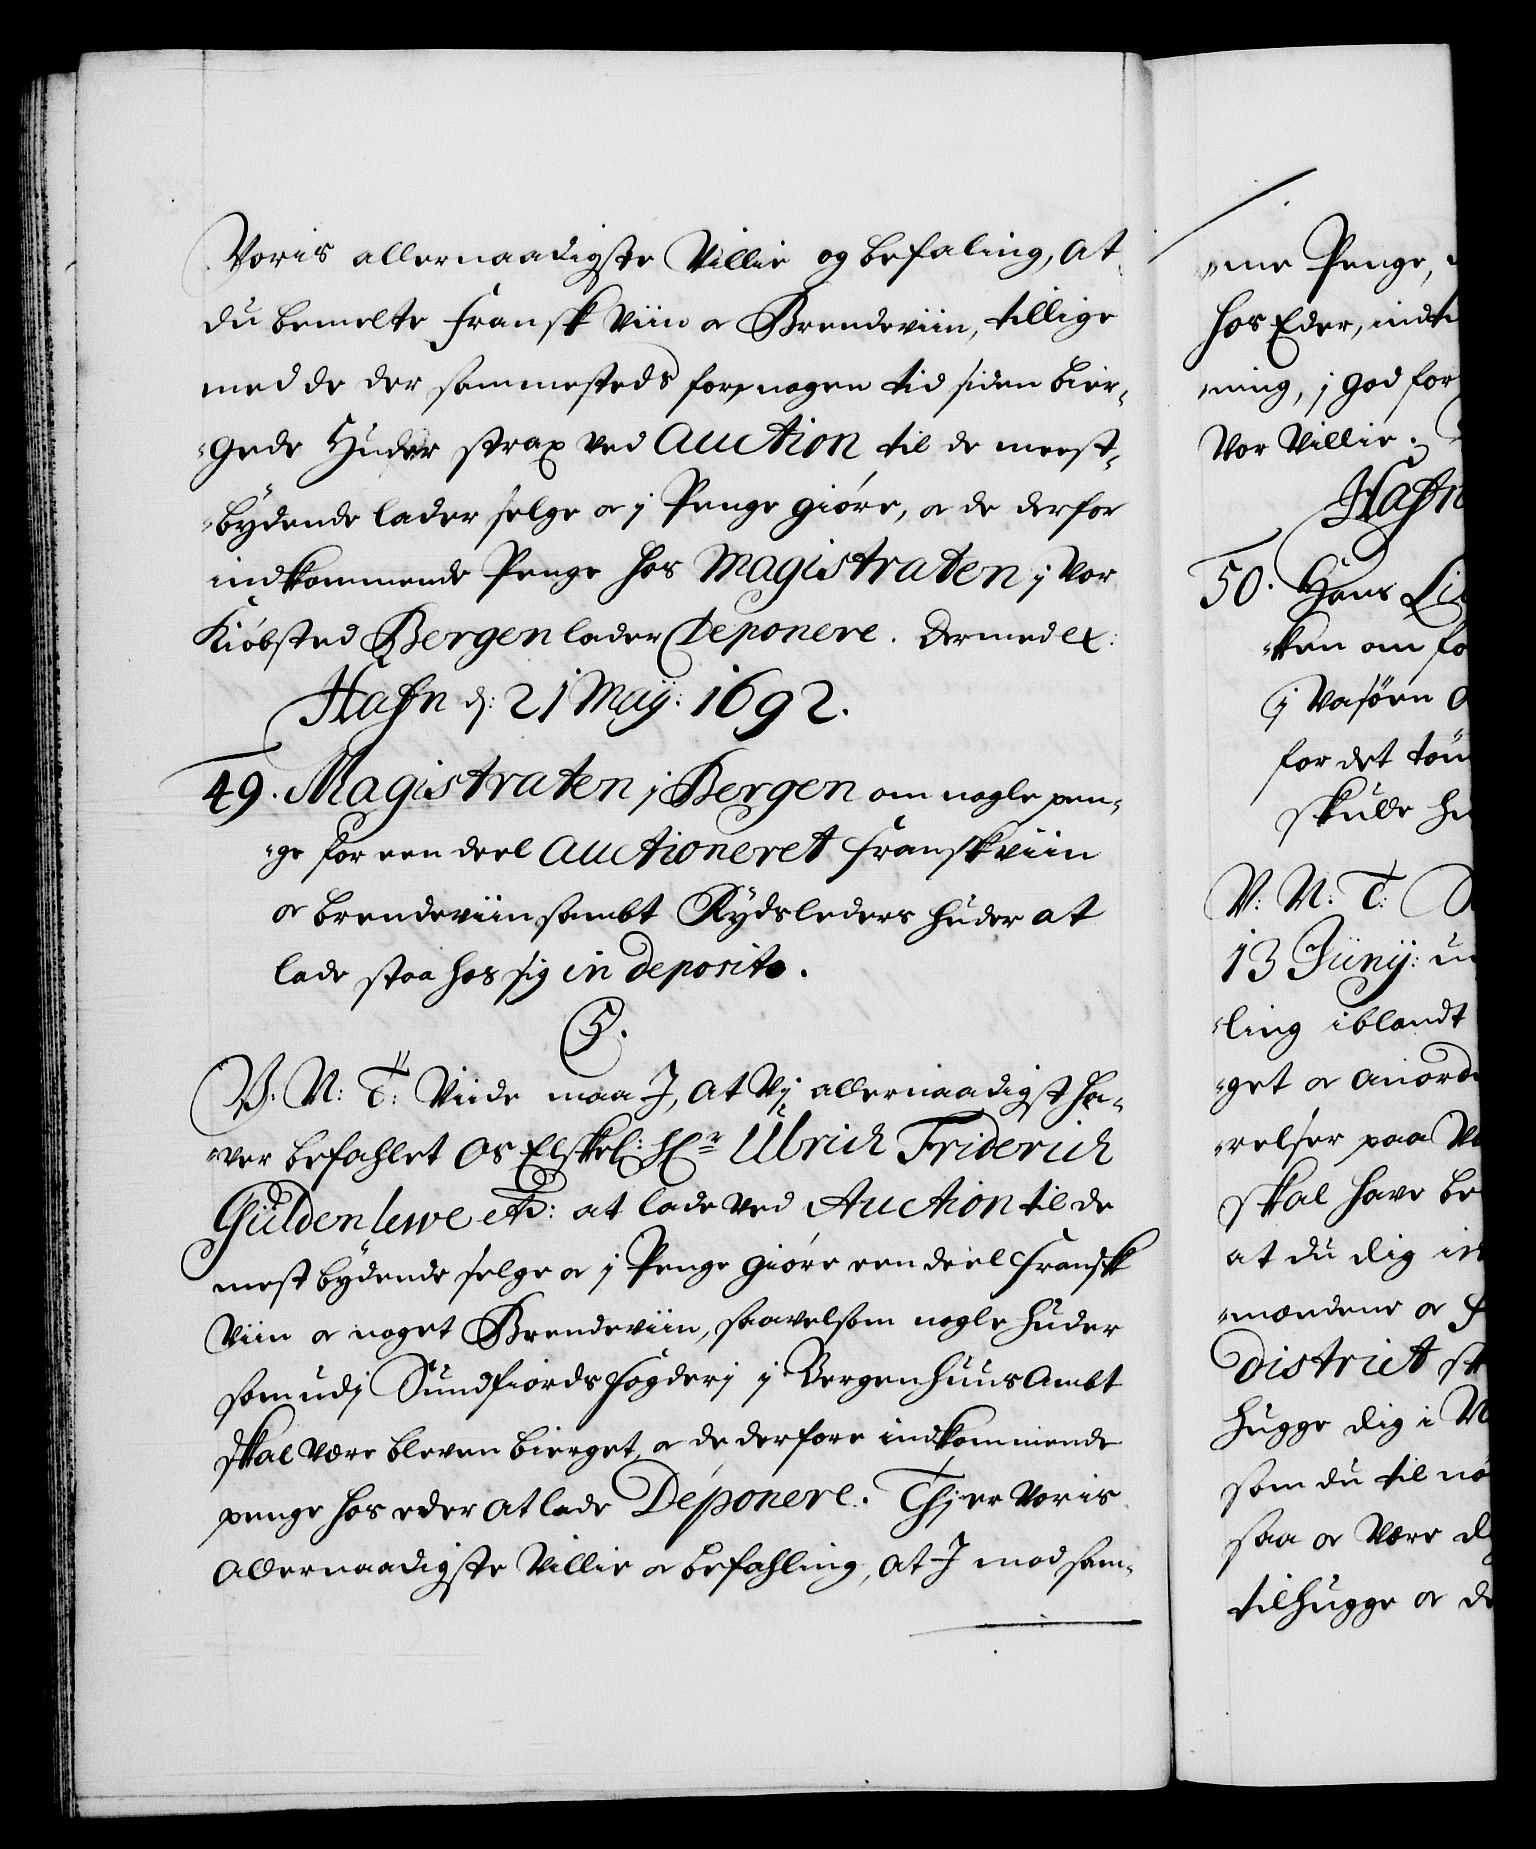 Voris allernaadigste Villie og befaling, at
du bemelte Fransk Viin oc Brendeviin, tillige
med de der sammesteds for nogen tid siden bier-
-gede Huder strax ved Auction til de meest-
-bÿdende lader selge oc j Penge giöre, oc de derfor
indkommende Penge hos Magistraten j Vor
Kiöbsted Bergen lader Deponere. Dermed ex:
Hafn d: 21 Maÿ: 1692.
49. Magistraten j Bergen om nogle pen-
-ge for een deel Auctioneret Franskviin
oc brendeviin sambt Rÿdsleders huder at
lade staa hos sig in deposito.
C5.
V. N: T: Viide maa J, at Vj allernaadigst ha-
-ver befahlet Os Elskel: Hr Ulrich Friderich
Güldenlewe etc: at lade ved Auction til de
mestbÿdende selge oc j Penge giöre een deel Fransk
Viin oc noget Brendeviin, saavelsom nogle huder
som udj Sundfiords fogderj j Bergenhuus Ambt
skal være bleven bierget, oc de derfore indkommende
penge hos eder at lade Deponere. Thj er Voris
Allernaadigste Villie oc befahling, at J mod sam-
-me Penge,
hos Eder, indti
-ning, j god for
Vor Villie.
Hafn
50. Hans Li
-ken om fo
j Vasöen
for det töm
skulde hu
V: N: T:
13 Junij: u
-ling iblandt
-get oc anord
-velser paa V
skal have be
at du dig i
-mændene oc F
District sk
hugge dig i
som du til nö
saa oc være d
tilhugge oc de